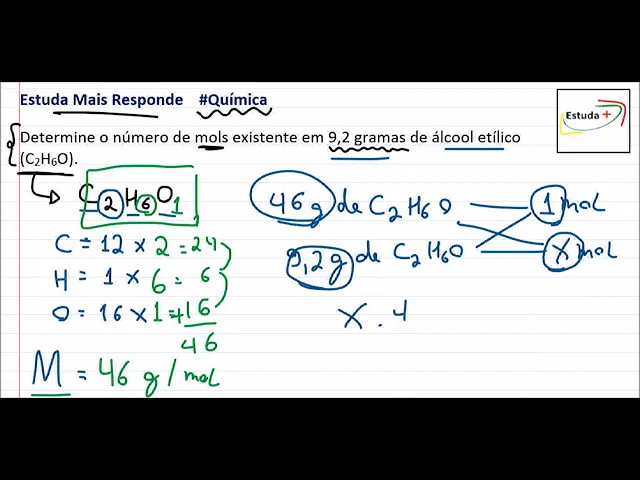 Estuda Mais Responde #Química
Estuda +
Determine o número de mols existente em 9,2 gramas de álcool etílico
(C2H6O).
C2H6O1
46g de C2H6O 1 mol
C = 12 x 2 = 24
9,2g de C2H6O x mol
H = 1 x 6 = 6
O = 16 x 1 = +16
x . 4
46
M = 46 g/mol